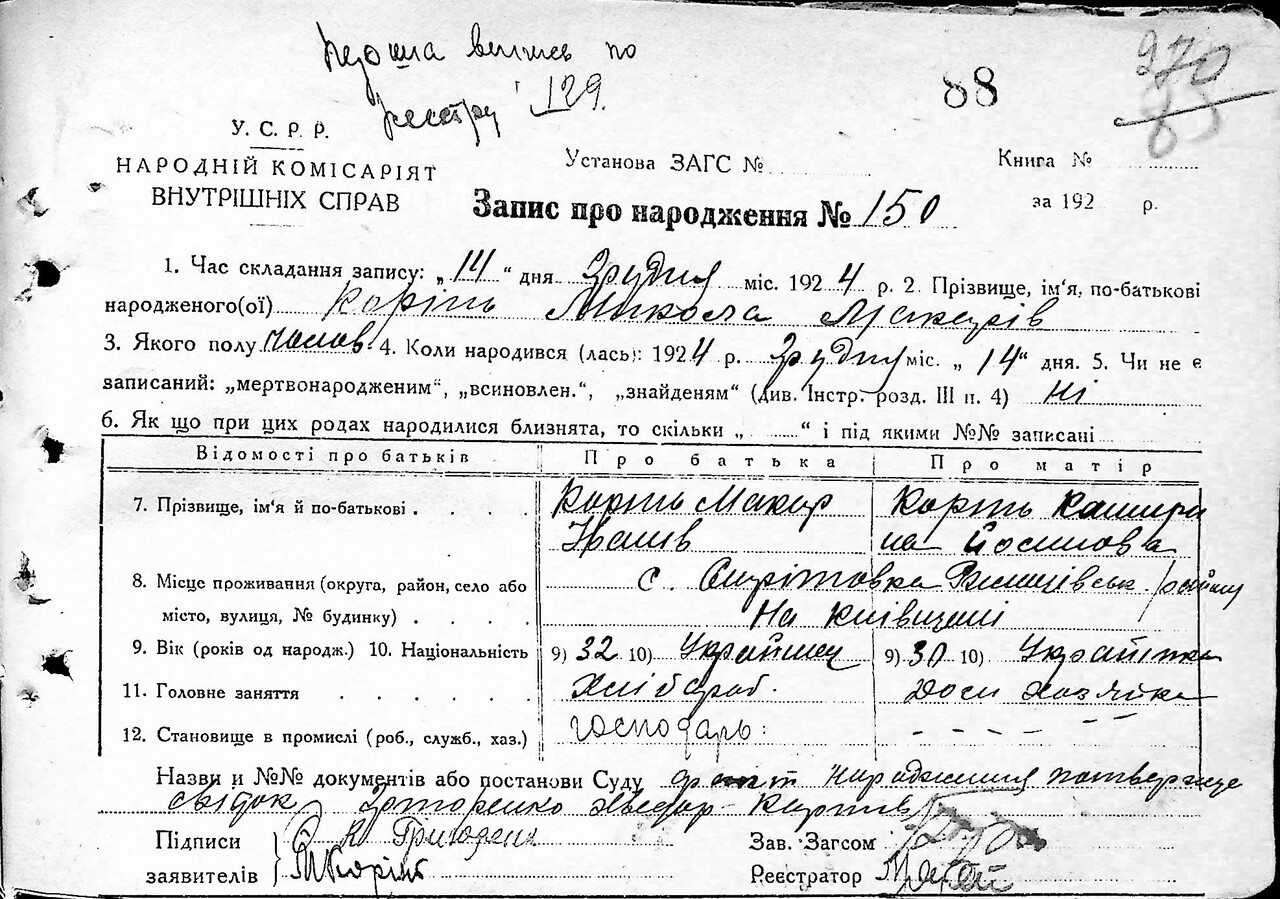 вепись по
реєстру 129.
88
970
У. С. Р. Р.
НАРОДНІЙ КОМІСАРІЯТ
ВНУТРІШНІХ СПРАВ
Установа ЗАГС №
Книга №
за 192 р.
Запис про народження № 150
1. Час складання запису: „14“ дня Грудня міс. 1924 р. 2. Прізвище, ім‘я, по-батькові
народженого(ої) Коріть Микола Макарів
3. Якого полу чолов. 4. Коли народився (лась): 1924 р. Грудня міс. „14“ дня. 5. Чи не є
записаний: „мертвонародженим“, „всиновлен.“, „знайденям“ (див. Інстр. розд. III п. 4) Ні
6. Як що при цих родах народилися близнята, то скільки „ “ і під якими №№ записані
Відомості про батьків Про батька Про матір
7. Прізвище, ім‘я й по-батькові . . . . Коріть Макар Коріть Катери
Іванів на Йосипова
8. Місце проживання (округа, район, село або с. Сирітовка району
місто, вулиця, № будинку) . . . . На Київщині
9. Вік (років од народж.) 10. Національність 9) 32 10) Українец 9) 30 10) Українка
11. Головне заняття . . . . . Хлібороб. Дом хазяйка
12. Становище в промислі (роб., служб., хаз.) господарь: - - - -
Назви и №№ документів або постанови Суду факт народження потверджує
свідок Хведор
Підписи К Григоренк
заявителів М Коріть
Зав. Загсом
Реєстратор